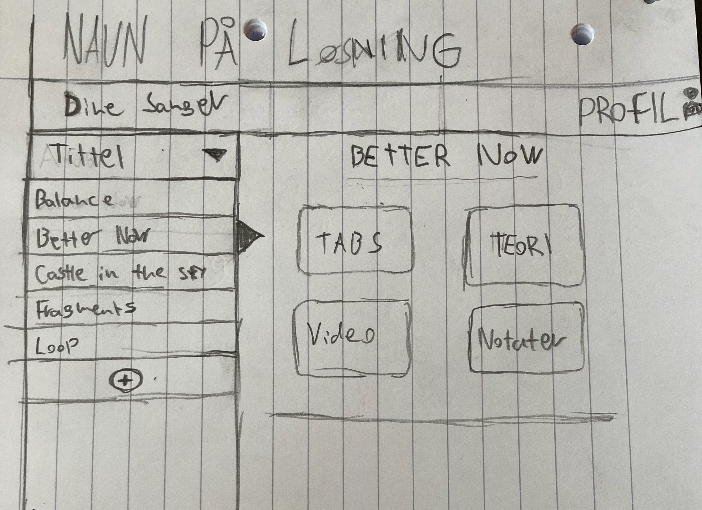 NAVN PÅ LØSNING
Dine Sanger
PROFIL
Tittel
BETTER NOW
Balance
Better Now
Castle in the sky
Fragments
Loop
TABS
TEORI
Video
Notater